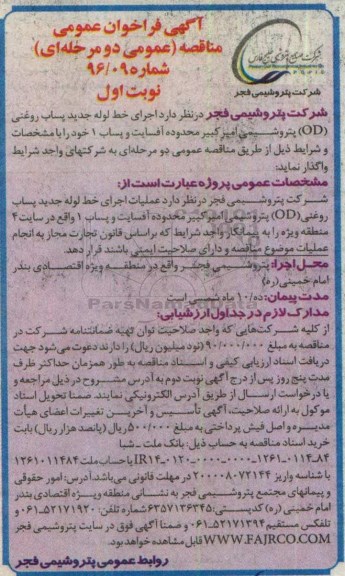 آگهی فراخوان عمومی
مناقصه (عمومی دو مرحله‌ای)
شماره ۹۶/۰۹
نوبت اول
شرکت پتروشیمی فجر
شرکت پتروشیمی فجر در نظر دارد اجرای خط لوله جدید پساب روغنی
(OD) پتروشیمی امیرکبیر محدوده آفسایت و پساب ۱ خود را با مشخصات
و شرایط ذیل از طریق مناقصه عمومی دو مرحله‌ای به شرکتهای واجد شرایط
واگذار نماید:
مشخصات عمومی پروژه عبارت است از:
شرکت پتروشیمی فجر در نظر دارد عملیات اجرای خط لوله جدید پساب
روغنی (OD) پتروشیمی امیرکبیر محدوده آفسایت و پساب ۱ واقع در سایت ۴
منطقه ویژه را به پیمانکار واجد شرایط که براساس قانون تجارت مجاز به انجام
عملیات موضوع مناقصه و دارای صلاحیت ایمنی باشند قرار دهد.
محل اجرا: پتروشیمی فجر واقع در منطقه ویژه اقتصادی بندر
امام خمینی (ره)
مدت پیمان: ده/۱۰ ماه شمسی است
مدارک لازم در جداول ارزشیابی:
از کلیه شرکت‌هایی که واجد صلاحیت توان تهیه ضمانتنامه شرکت در
مناقصه به مبلغ ۹۰/۰۰۰/۰۰۰ (نود میلیون ریال) را دارند دعوت می‌شود جهت
دریافت اسناد ارزیابی کیفی و اسناد مناقصه به طور همزمان حداکثر ظرف
مدت پنج روز پس از درج آگهی نوبت دوم به آدرس مشروح در ذیل مراجعه و
یا درخواست ارسال از طریق آدرس الکترونیکی نمایند. ضمنا تحویل اسناد
موکول به ارائه صلاحیت، آگهی تأسیس و آخرین تغییرات اعضای هیأت
مدیره و اصل فیش پرداختی به مبلغ ۵۰۰/۰۰۰ ریال (پانصد هزار ریال) بابت
خرید اسناد مناقصه به حساب ذیل: بانک ملت - شبا
IR۱۴۰۱۲۰۰۰۰۰۰۰۰۱۲۶۱۰۱۱۴۸۴ یا حساب ملت ۱۲۶۱۰۱۱۴۸۴
با شناسه واریز ۲۰۰۰۰۸۰۷۲۱۴۴ در مهلت قانونی می‌باشد. آدرس: امور حقوقی
و پیمانهای مجتمع پتروشیمی فجر به نشانی منطقه ویژه اقتصادی بندر
امام خمینی (ره) کدپستی: ۶۳۵۷۱۳۶۳۴۵ شماره تلفن: ۰۶۱-۵۲۱۷۱۹۲۰ و
تلفکس مستقیم ۰۶۱-۵۲۱۷۱۳۹۴ و ضمنا آگهی فوق در سایت پتروشیمی فجر
WWW.FAJRCO.COM قابل مشاهده خواهد بود.
روابط عمومی پتروشیمی فجر